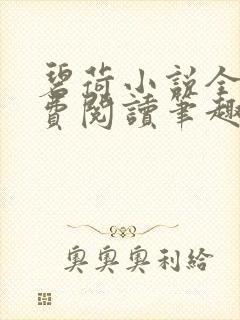 碧荷小说全
费閱讀筆趣
奧奧奧利給